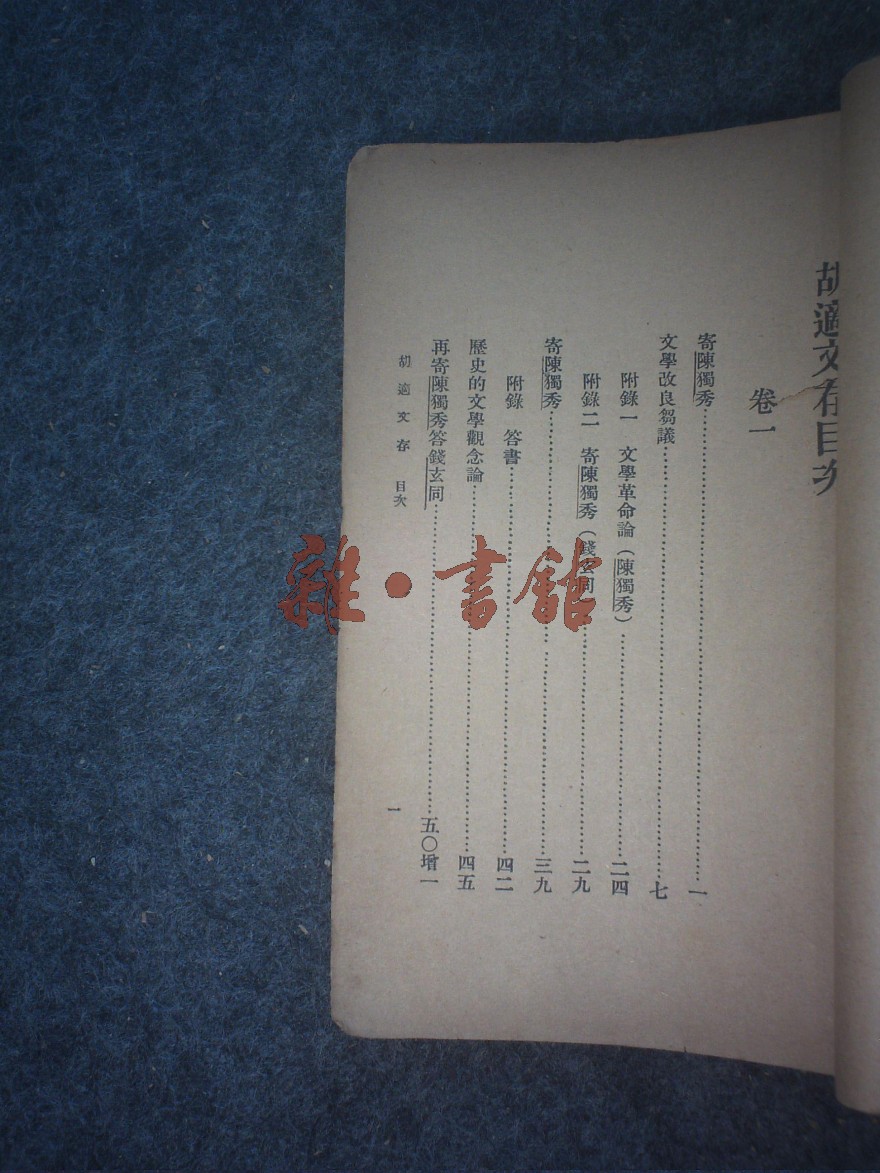 胡適文存目次
卷一
寄陳獨秀……一
文學改良芻議……七
附錄一　文學革命論（陳獨秀）……二四
附錄二　寄陳獨秀（錢玄同）……二九
寄陳獨秀……三九
附錄　答書……四二
歷史的文學觀念論……四五
再寄陳獨秀答錢玄同……五〇增一
胡適文存　目次
一
雜·書館